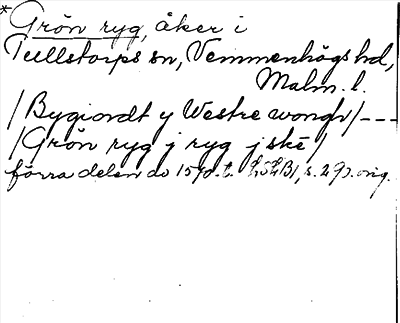 *Grön ryg, åker i
Tullstorps sn, Vemmenhögs hd,
Malm. l.
/Bygiordt y Westre wongh/---
/Grön ryg j ryg j ské/
förra delen do 1570.t. LSLB1, s. 293. orig.